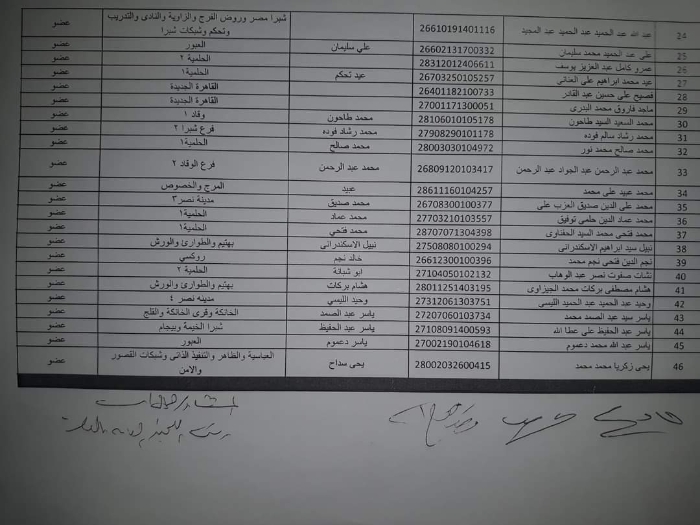 24 عبد الله عبد الحميد عبد الحميد عبد المجيد 26610191401116 شبرا مصر وروض الفرج والزاوية والنادى والتدريب وتحكم وشبكات شبرا عضو
25 على عبد الحميد محمد سليمان 26602131700332 علي سليمان العبور عضو
26 عمرو كامل عبد العزيز يوسف 28312012406611 الحلمية ٢ عضو
27 عيد محمد ابراهيم على العنانى 26703250105257 عيد تحكم الحلمية١ عضو
28 فصيح على حسين عبد القادر 26401182100733 القاهرة الجديدة عضو
29 ماجد فاروق محمد البدرى 27001171300051 القاهرة الجديدة عضو
30 محمد السعيد السيد طاحون 28106010105178 محمد طاحون وفاد ١ عضو
31 محمد رشاد سالم فوده 27908290101178 محمد رشاد فوده فرع شبرا ٢ عضو
32 محمد صالح محمد نور 28003030104972 محمد صالح الحلمية١ عضو
33 محمد عبد الرحمن عبد الجواد عبد الرحمن 26809120103417 محمد عبد الرحمن فرع الوفاد ٢ عضو
34 محمد عبيد على محمد 28611160104257 عبيد المرج والخصوص عضو
35 محمد على الدين صديق العزب على 26708300100377 محمد صديق مدينة نصر٣ عضو
36 محمد عماد الدين حلمي توفيق 27703210103557 محمد عماد الحلمية١ عضو
37 محمد فتحي محمد السيد الحفناوى 28707071304398 محمد فتحي الحلمية١ عضو
38 نبيل سيد ابراهيم الاسكندرانى 27508080100294 نبيل الاسكندرانى بهتيم والطوارئ والورش عضو
39 نجم الدين فتحي نجم محمد 26612300100396 خالد نجم روكسي عضو
40 نشات صفوت نصر عبد الوهاب 27104050102132 ابو شبانة الحلمية ٢ عضو
41 هشام مصطفى بركات محمد الجيزاوى 28011251403195 هشام بركات بهتيم والطوارئ والورش عضو
42 وحيد عبد الحميد عبد الحميد الليسى 27312061303751 وحيد الليسي مدينه نصر ٤ عضو
43 ياسر سيد عبد الصمد محمد 27207060103734 ياسر عبد الصمد الخانكة وقرى الخانكة والقلج عضو
44 ياسر عبد الحفيظ على عطا الله 27108091400593 ياسر عبد الحفيظ شبرا الخيمة وبيجام عضو
45 ياسر عبد الله محمد دعموم 27002190104618 ياسر دعموم العبور عضو
46 يحى زكريا محمد محمد 28002032600415 يحى سداح العباسية والظاهر والتنفيذ الذاتى وشبكات القصور والامن عضو